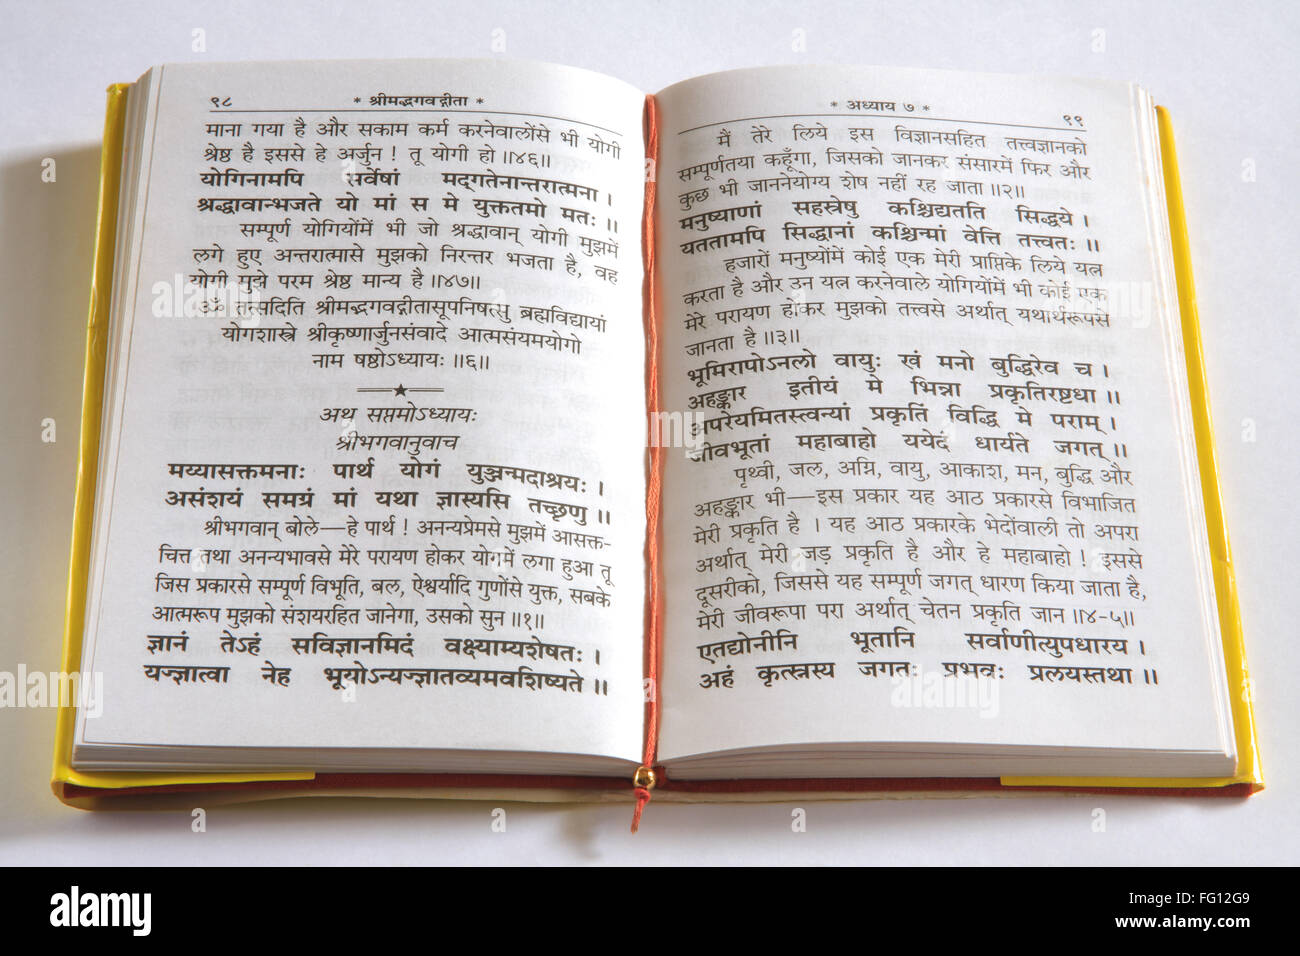 ९८
* श्रीमद्भगवद्गीता *
माना गया है और सकाम कर्म करनेवालोंसे भी योगी
श्रेष्ठ है इससे हे अर्जुन! तू योगी हो॥४६॥
योगिनामपि सर्वेषां मद्गतेनान्तरात्मना।
श्रद्धावान्भजते यो मां स मे युक्ततमो मतः॥
सम्पूर्ण योगियोंमें भी जो श्रद्धावान् योगी मुझमें
लगे हुए अन्तरात्मासे मुझको निरन्तर भजता है, वह
योगी मुझे परम श्रेष्ठ मान्य है॥४७॥
ॐ तत्सदिति श्रीमद्भगवद्गीतासूपनिषत्सु ब्रह्मविद्यायां
योगशास्त्रे श्रीकृष्णार्जुनसंवादे आत्मसंयमयोगो
नाम षष्ठोऽध्यायः॥६॥
अथ सप्तमोऽध्यायः
श्रीभगवानुवाच
मय्यासक्तमनाः पार्थ योगं युञ्जन्मदाश्रयः।
असंशयं समग्रं मां यथा ज्ञास्यसि तच्छृणु॥
श्रीभगवान् बोले—हे पार्थ! अनन्यप्रेमसे मुझमें आसक्त-
चित्त तथा अनन्यभावसे मेरे परायण होकर योगमें लगा हुआ तू
जिस प्रकारसे सम्पूर्ण विभूति, बल, ऐश्वर्यादि गुणोंसे युक्त, सबके
आत्मरूप मुझको संशयरहित जानेगा, उसको सुन॥१॥
ज्ञानं तेऽहं सविज्ञानमिदं वक्ष्याम्यशेषतः।
यज्ज्ञात्वा नेह भूयोऽन्यज्ज्ञातव्यमवशिष्यते॥
* अध्याय ७ *
९९
मैं तेरे लिये इस विज्ञानसहित तत्त्वज्ञानको
सम्पूर्णतया कहूँगा, जिसको जानकर संसारमें फिर और
कुछ भी जाननेयोग्य शेष नहीं रह जाता॥२॥
मनुष्याणां सहस्रेषु कश्चिद्यतति सिद्धये।
यततामपि सिद्धानां कश्चिन्मां वेत्ति तत्त्वतः॥
हजारों मनुष्योंमें कोई एक मेरी प्राप्तिके लिये यत्न
करता है और उन यत्न करनेवाले योगियोंमें भी कोई एक
मेरे परायण होकर मुझको तत्त्वसे अर्थात् यथार्थरूपसे
जानता है॥३॥
भूमिरापोऽनलो वायुः खं मनो बुद्धिरेव च।
अहङ्कार इतीयं मे भिन्ना प्रकृतिरष्टधा॥
अपरेयमितस्त्वन्यां प्रकृतिं विद्धि मे पराम्।
जीवभूतां महाबाहो ययेदं धार्यते जगत्॥
पृथ्वी, जल, अग्नि, वायु, आकाश, मन, बुद्धि और
अहङ्कार भी—इस प्रकार यह आठ प्रकारसे विभाजित
मेरी प्रकृति है। यह आठ प्रकारके भेदोंवाली तो अपरा
अर्थात् मेरी जड़ प्रकृति है और हे महाबाहो! इससे
दूसरीको, जिससे यह सम्पूर्ण जगत् धारण किया जाता है,
मेरी जीवरूपा परा अर्थात् चेतन प्रकृति जान॥४-५॥
एतद्योनीनि भूतानि सर्वाणीत्युपधारय।
अहं कृत्स्नस्य जगतः प्रभवः प्रलयस्तथा॥
a alamy stock photo
FG12G9
www.alamy.com